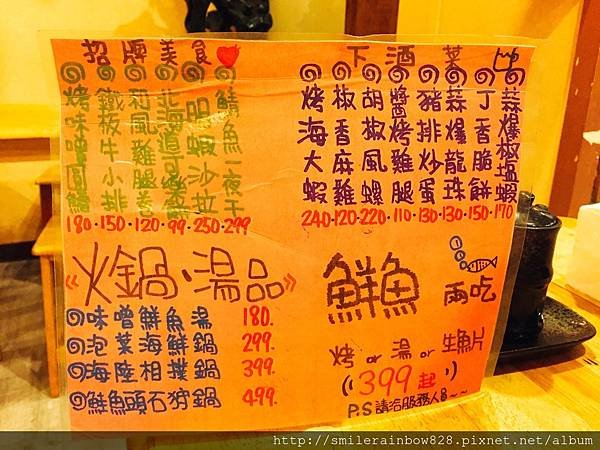 招牌美食
烤味噌圓鱈 180.
鐵板牛小排 150.
和風雞腿卷 120.
北海道可樂餅 99.
明蝦沙拉 250.
鯖魚一夜干 299
下酒菜
烤海大蝦 240.
椒香麻雞 120.
胡椒風螺 220.
醬烤雞腿 110.
豬排炒蛋 130.
蒜爆龍珠 130.
丁香脆餅 150.
蒜爆椒塩蝦 170
《火鍋·湯品》
味噌鮮魚湯 180.
泡菜海鮮鍋 299.
海陸相撲鍋 399.
鮭魚頭石狩鍋 499.
鮮魚 兩吃
烤 or 湯 or 生魚片
399起
P.S 請洽服務人員~~
http://smilerainbow828.pixnet.net/album